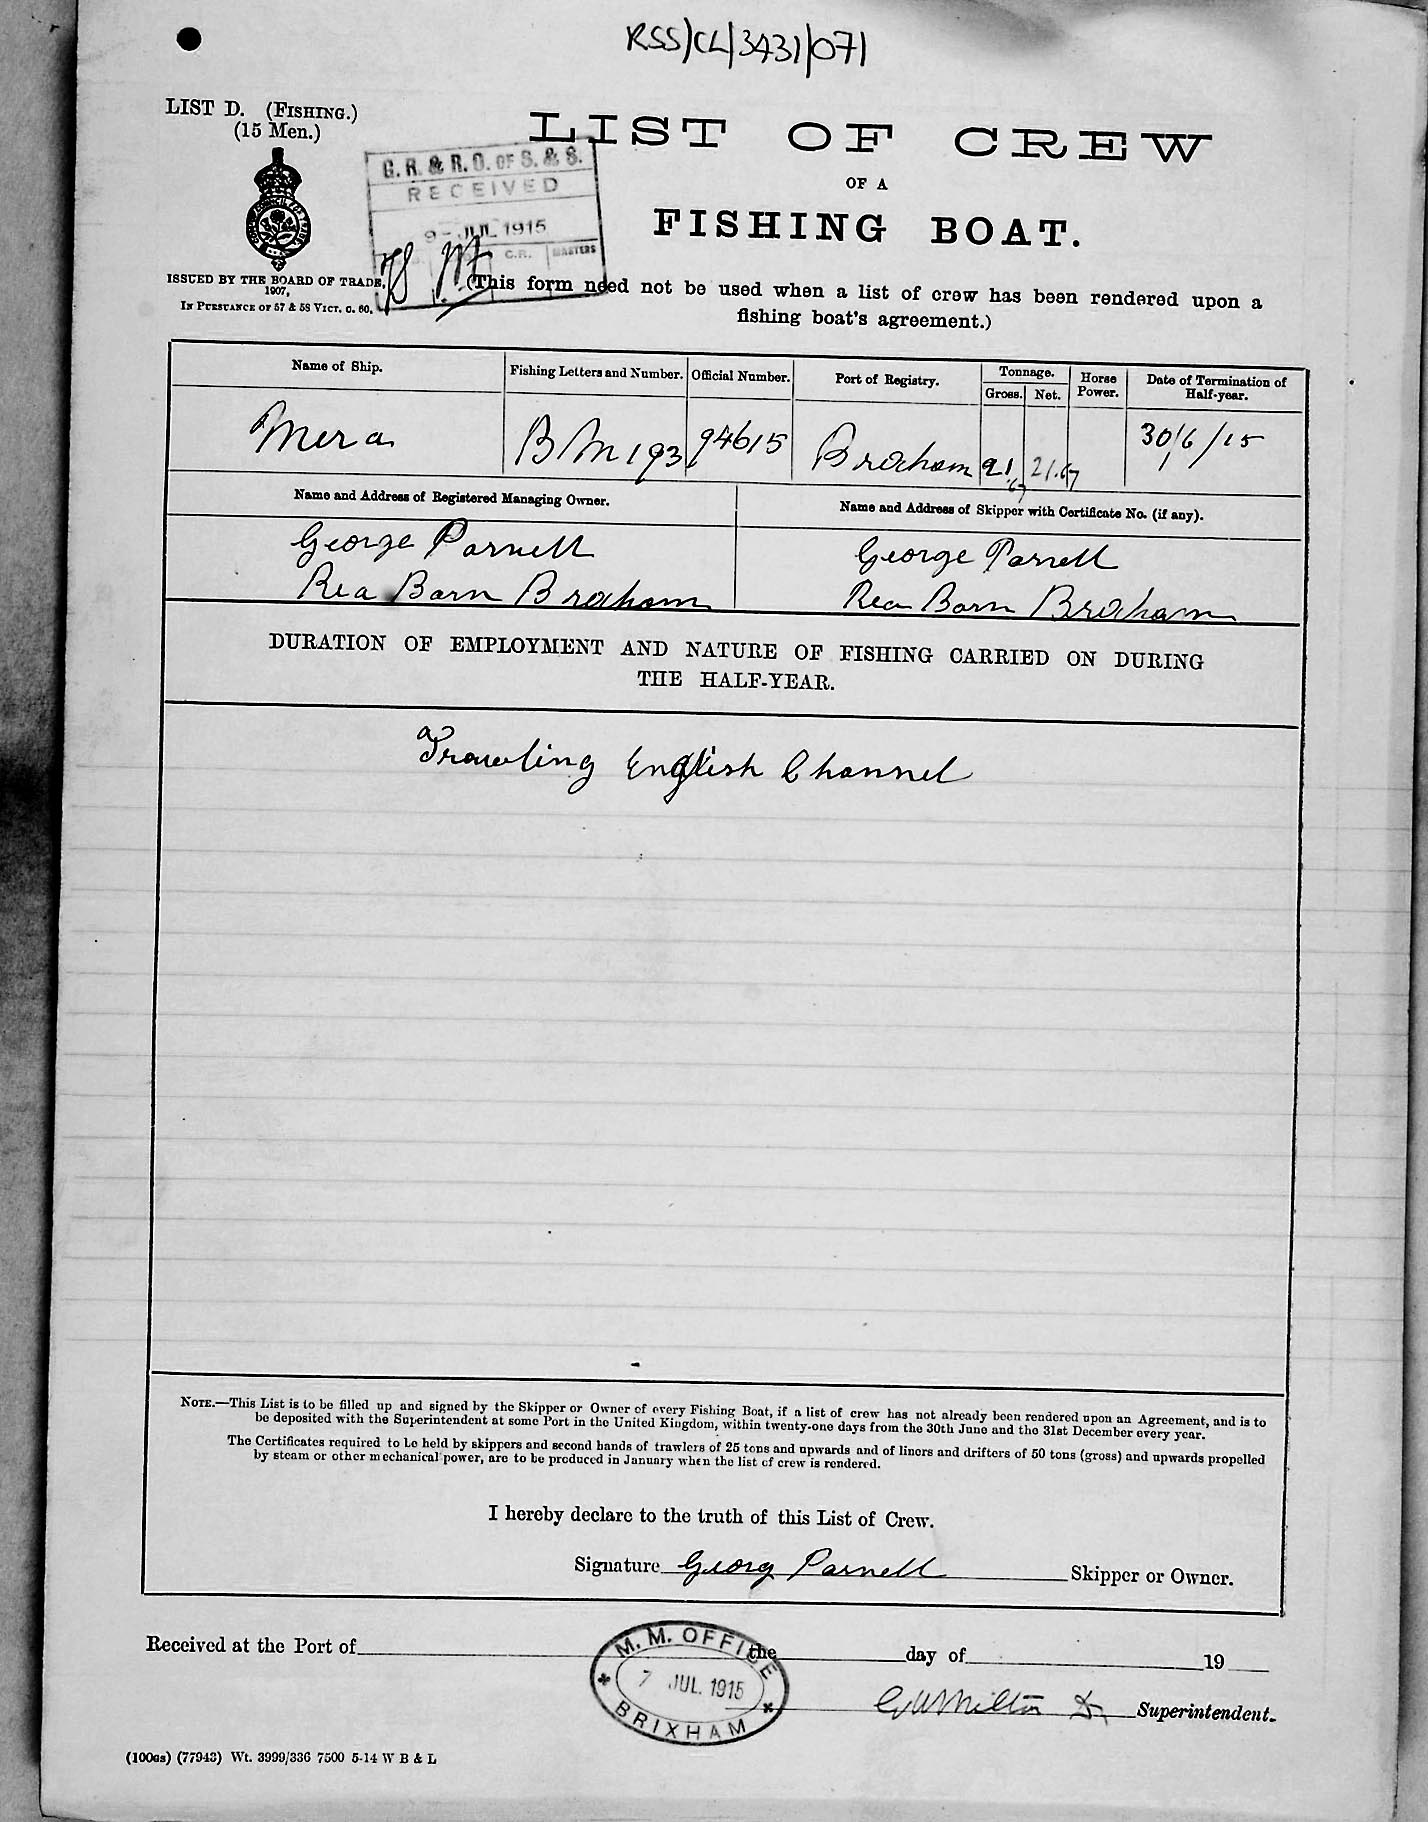 RSS/CL/3431/071
LIST D. (FISHING.)
(15 Men.)
LIST OF CREW
OF A
FISHING BOAT.
G. R. & R. O. OF S. & S.
RECEIVED
9 - JUL 1915
C.R. MASTERS
ISSUED BY THE BOARD OF TRADE,
1907,
IN PURSUANCE OF 57 & 58 VICT. C. 60.
(This form need not be used when a list of crew has been rendered upon a
fishing boat's agreement.)
Name of Ship. Fishing Letters and Number. Official Number. Port of Registry. Tonnage. Gross. Net. Horse Power. Date of Termination of Half-year.
Mera BM 193 94615 Brixham 21.67 21.67 30/6/15
Name and Address of Registered Managing Owner. Name and Address of Skipper with Certificate No. (if any).
George Parnell George Parnell
Rea Barn Brixham Rea Barn Brixham
DURATION OF EMPLOYMENT AND NATURE OF FISHING CARRIED ON DURING
THE HALF-YEAR.
Trawling English Channel
NOTE.—This List is to be filled up and signed by the Skipper or Owner of every Fishing Boat, if a list of crew has not already been rendered upon an Agreement, and is to
be deposited with the Superintendent at some Port in the United Kingdom, within twenty-one days from the 30th June and the 31st December every year.
The Certificates required to be held by skippers and second hands of trawlers of 25 tons and upwards and of liners and drifters of 50 tons (gross) and upwards propelled
by steam or other mechanical power, are to be produced in January when the list of crew is rendered.
I hereby declare to the truth of this List of Crew.
Signature Georg Parnell Skipper or Owner.
Received at the Port of the day of 19
M. M. OFFICE
7 JUL. 1915
BRIXHAM
Superintendent.
(100gs) (77943) Wt. 3999/336 7500 5-14 W B & L